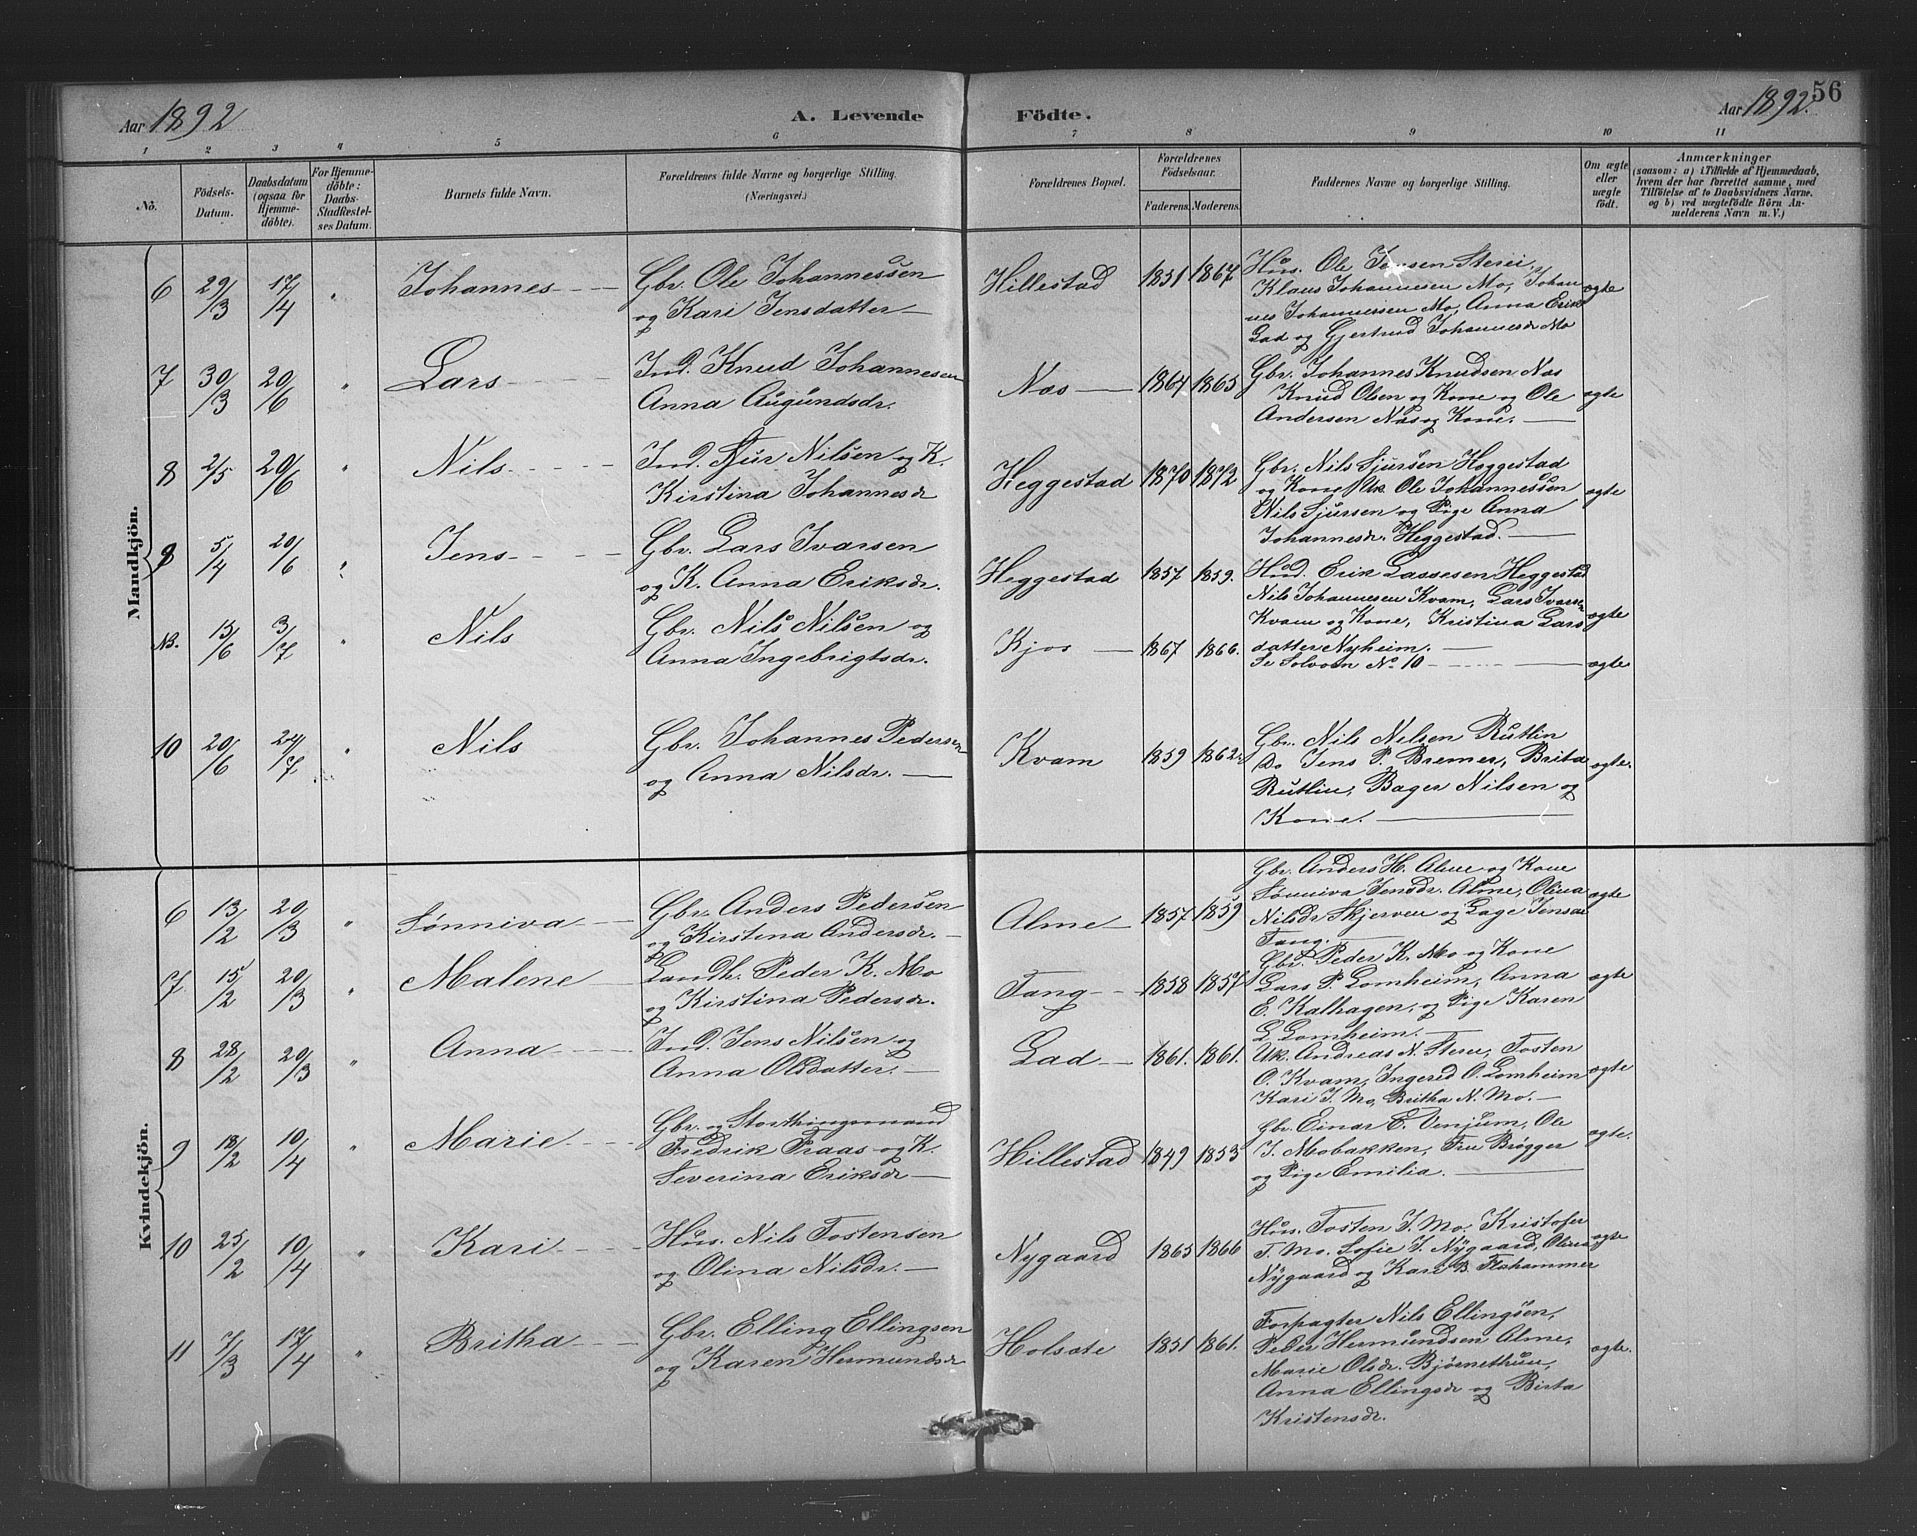 Aar 1892
A. Levende
Födte.
Aar 1892.
56
1 2 3 4 5 6 7 8 9 10 11
No.
Födsels-
Datum.
Daabsdatum
(ogsaa for
Hjemme-
döbte).
For Hjemme-
döbte:
Daabs-
Stadfæstel-
ses Datum.
Barnets fulde Navn.
Forældrenes fulde Navne og borgerlige Stilling.
(Næringsvei.)
Forældrenes Bopæl.
Forældrenes
Födselsaar.
Faderens. Moderens.
Faddernes Navne og borgerlige Stilling.
Om ægte
eller
uægte
födt.
Anmærkninger
(saasom: a) i Tilfælde af Hjemmedaab,
hvem der har forrettet samme, med
Tilföielse af to Daabsvidners Navne.
og b) ved uægtefödte Börn An-
melderens Navn m. V.)
Mandkjön.
6 29/3 17/4 " Johannes
Gbr. Ole Johannessen
og Kari Jensdatter
Hillestad 1851 1867
Hus. Ole Jensen Sterei,
Klaus Johannesen Mo, Johan
nes Johannessen Mo, Anna Erik
Lad og Gjertrud Johannesdr Mo
ægte
7 30/3 20/6 " Lars
Ind. Knud Johannesen
Anna Augundsdr.
Næs 1864 1865
Gbr. Johannes Knudsen Næs
Knud Olsen og Kone og Ole
Andersen Næs og Kone.
ægte
8 2/5 20/6 " Nils
Ind. Sjur Nilsen og K.
Kirstina Johannesdr
Heggestad 1870 1872
Gbr. Nils Sjursen Heggestad
og Kone, Uk. Ole Johannessen
Nils Sjursen og Pige Anna
Johannesdr. Heggestad.
ægte
9 5/4 20/6 " Jens
Gbr. Lars Ivarsen
og K. Anna Eriksdr.
Heggestad 1857 1859.
Hud. Erik Lassesen Heggestad
Nils Johannesen Kvam, Lars Ivarsen
Kvam og Kone, Kristina Lars
datter Nyheim.
ægte
NB. 15/6 3/7 " Nils
Gbr. Nils Nilsen og
Anna Ingebrigtsdr.
Kjos 1867 1866.
Se Solvorn No. 10
ægte
10 20/6 24/7 " Nils
Gbr. Johannes Pedersen
og Anna Nilsdr.
Kvam 1859 1862
Gbr. Nils Nelsen Rutlin
Do Jens P. Bremer, Brita
Rutlin, Bager Nilsen og
Kone.
ægte.
Kvindekjön.
6 13/2 20/3 " Sønniva
Gbr. Anders Pedersen
og Kirstina Andersdr.
Alme 1857 1859
Gbr. Anders H. Alme og Kone
Sønniva Jensdr. Alme, Olina
Nilsdr Skjerven og Lage Jensdr
Tang.
ægte
7 15/2 20/3 " Malene
Landh. Peder K. Mo
og Kirstina Pedersdr.
Tang 1858 1857
Gbr. Peder K. Mo og Kone
Lars P. Lomheim, Anna
E. Kalhagen, og Pige Karen
L Lomheim.
ægte
8 28/2 20/3 " Anna
Ind. Jens Nilsen og
Anna Olsdatter.
Lad 1861. 1861.
Uk. Andreas N. Stere, Tosten
O. Kvam, Ingered O. Lomheim
Kari J. Mo, Britha N. Mo.
ægte
9 18/2 10/4 " Marie
Gbr. og Storthingsmand
Fredrik Fraas og K.
Severina Eriksdr
Hillestad 1849 1853
Gbr. Einar E. Venjum, Ole
J. Mobakken, Fru Brøgger
og Pige Emilia.
ægte.
10 25/2 10/4 " Kari
Hus. Nils Tostensen
og Olina Nilsdr.
Nygaard 1865 1866
Hus. Tosten J. Mo, Kristofer
T. Mo. Sofie J. Nygaard, Olina
Nygaard og Kari B. Flohammer
ægte
11 7/3 17/4 " Britha
Gbr. Elling Ellingsen
og Karen Hermundsdr
Holsæte 1851 1861.
Forpagter Nils Ellingsen,
Peder Hermundsen Alme,
Marie Olsdr. Bjørnethun,
Anna Ellingsdr og Birta
Kristensdr.
ægte.